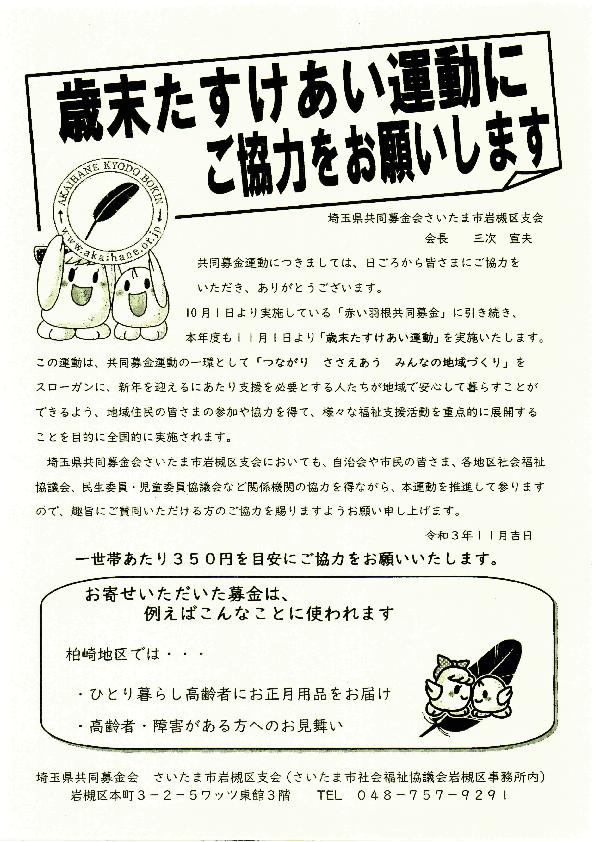 歳末たすけあい運動に
ご協力をお願いします
AKAIHANE KYODO BOKIN
www.akaihane.or.jp
埼玉県共同募金会さいたま市岩槻区支会
会長　三次　宣夫
共同募金運動につきましては、日ごろから皆さまにご協力を
いただき、ありがとうございます。
10月1日より実施している「赤い羽根共同募金」に引き続き、
本年度も11月1日より「歳末たすけあい運動」を実施いたします。
この運動は、共同募金運動の一環として「つながり　ささえあう　みんなの地域づくり」を
スローガンに、新年を迎えるにあたり支援を必要とする人たちが地域で安心して暮らすことが
できるよう、地域住民の皆さまの参加や協力を得て、様々な福祉支援活動を重点的に展開する
ことを目的に全国的に実施されます。
埼玉県共同募金会さいたま市岩槻区支会においても、自治会や市民の皆さま、各地区社会福祉
協議会、民生委員・児童委員協議会など関係機関の協力を得ながら、本運動を推進して参ります
ので、趣旨にご賛同いただける方のご協力を賜りますようお願い申し上げます。
令和3年11月吉日
一世帯あたり350円を目安にご協力をお願いいたします。
お寄せいただいた募金は、
例えばこんなことに使われます
柏崎地区では・・・
・ひとり暮らし高齢者にお正月用品をお届け
・高齢者・障害がある方へのお見舞い
埼玉県共同募金会　さいたま市岩槻区支会（さいたま市社会福祉協議会岩槻区事務所内）
岩槻区本町3－2－5ワッツ東館3階　TEL　048－757－9291